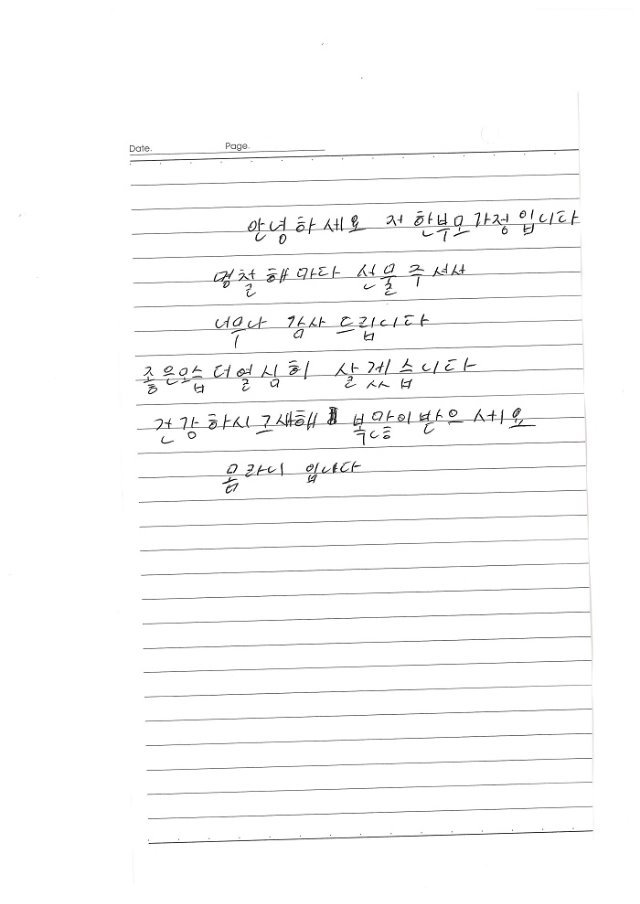 Date. Page.
안녕하세요 저 한부모가정입니다
명절해마다 선물주셔서
너무나 감사 드립니다
좋은모습더열심히 살겠습니다
건강 하시고새해 복많이받으세요
몸라니 입니다